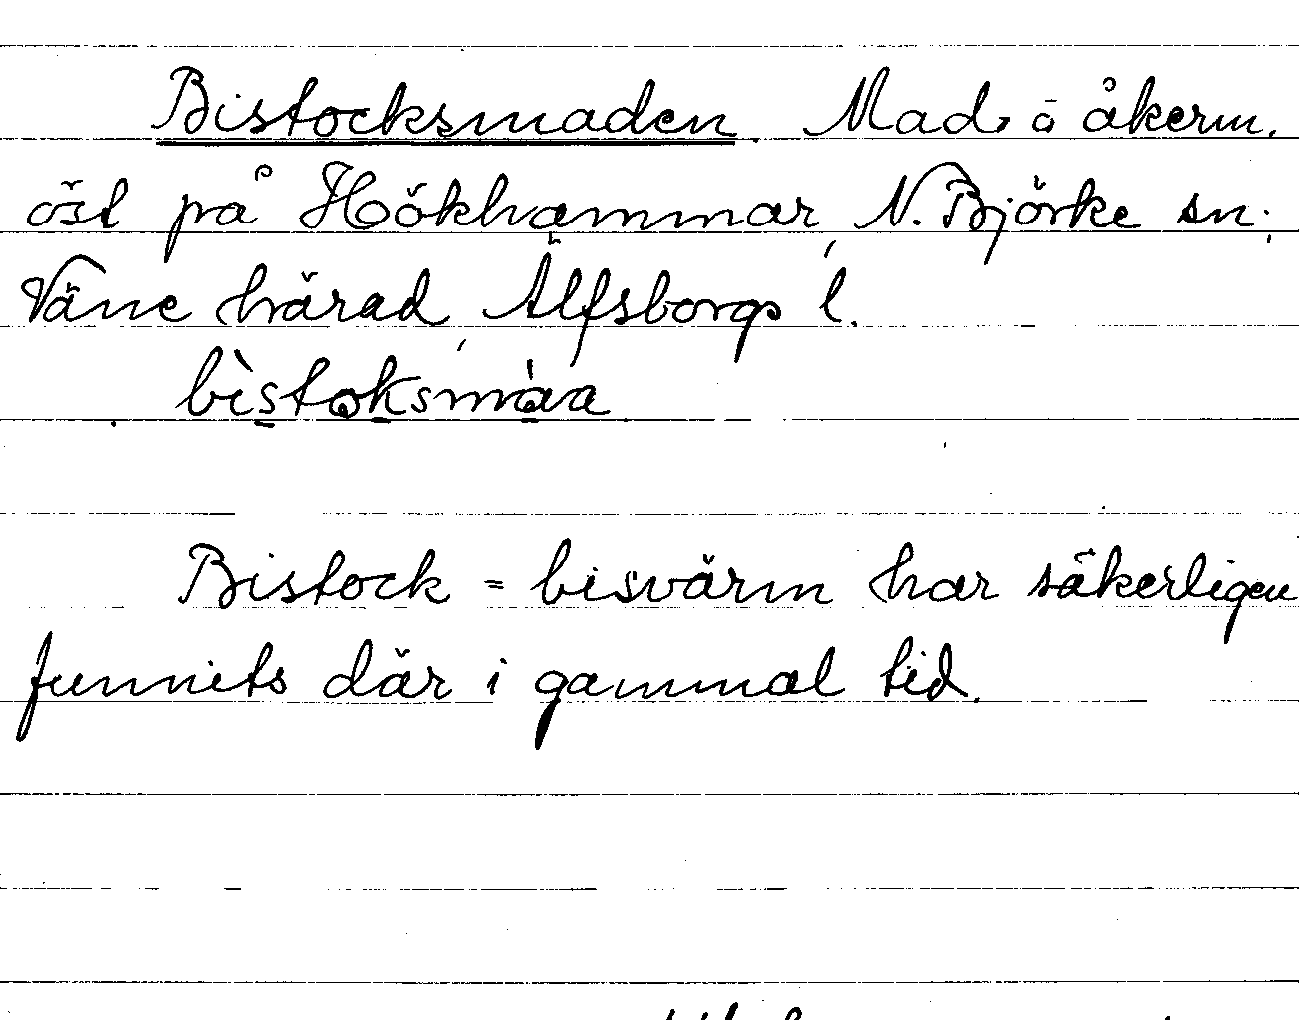 Bistocksmaden. Mad o åkerm.
öst på Hökhammar, N. Björke sn;
Väne härad, Älfsborgs l.
bìstoksmàa
Bistock = bisvärm har säkerligen
funnits där i gammal tid.